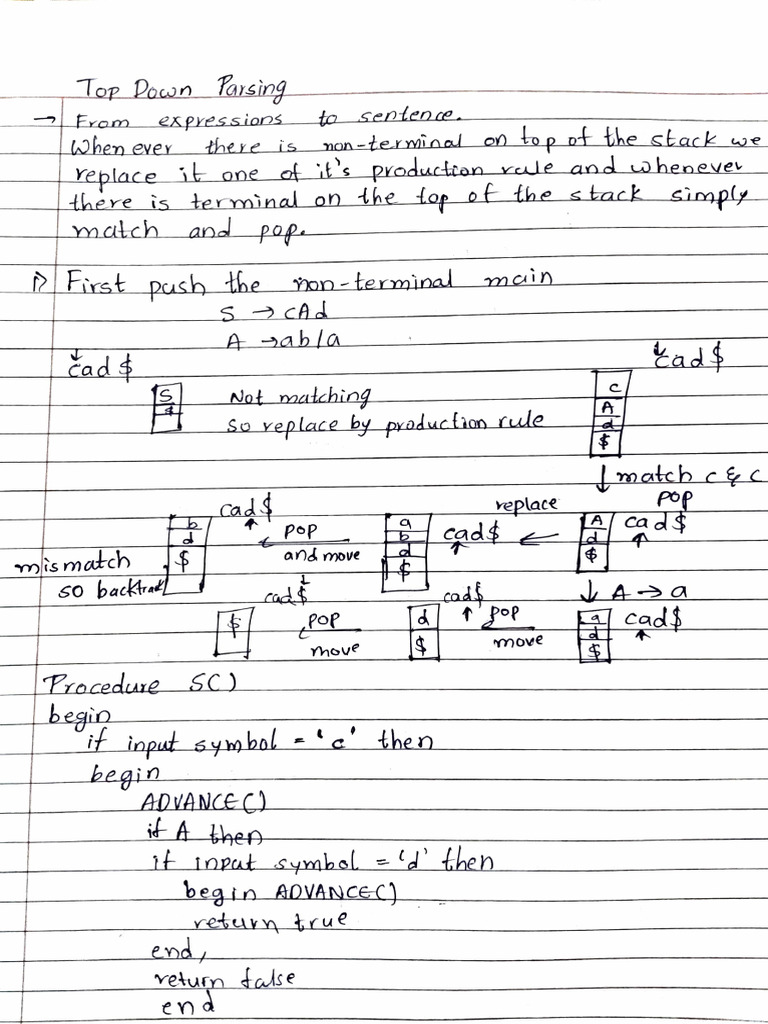 Top Down Parsing
→ From expressions to sentence.
Whenever there is non-terminal on top of the stack we
replace it one of it's production rule and whenever
there is terminal on the top of the stack simply
match and pop.
1) First push the non-terminal main
S → cAd
A → ab/a
cad$
cad$
S
$
Not matching
so replace by production rule
c
A
d
$
↓ match c & c
pop
b
d
$
cad$
↑
pop
←
and move
a
b
d
$
cad$
↑
replace
←
A
d
$
cad$
↑
mismatch
so backtrack
↓ A → a
$
cad$
pop
←
move
d
$
cad$
↑
pop
←
move
a
d
$
cad$
↑
Procedure S()
begin
if input symbol = 'c' then
begin
ADVANCE()
if A then
if input symbol = 'd' then
begin ADVANCE()
return true
end,
return false
end